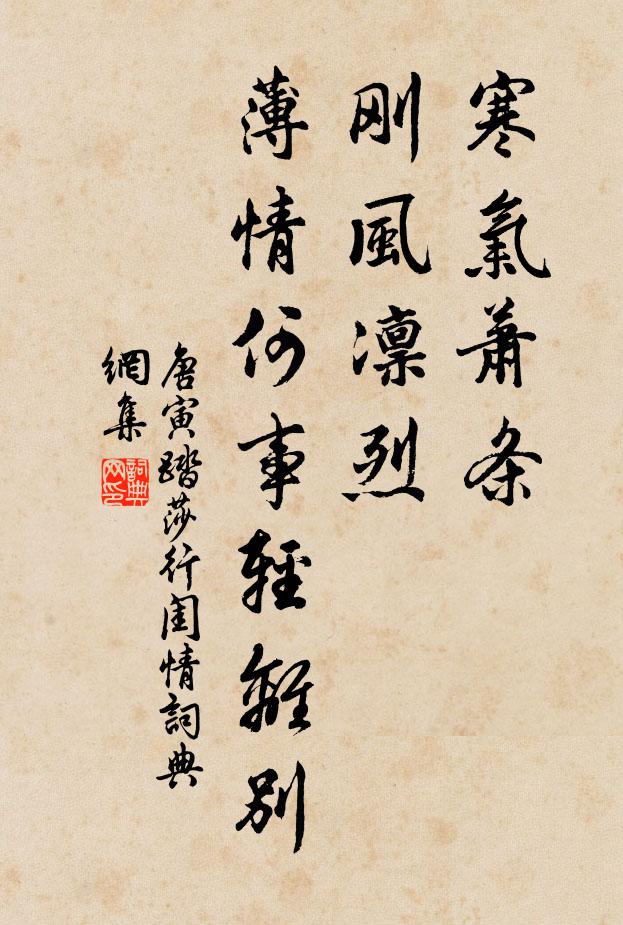 寒氣蕭条
剛風凛烈
薄情何事輕離别
唐寅踏莎行閨情詞典
網集
詞典網印